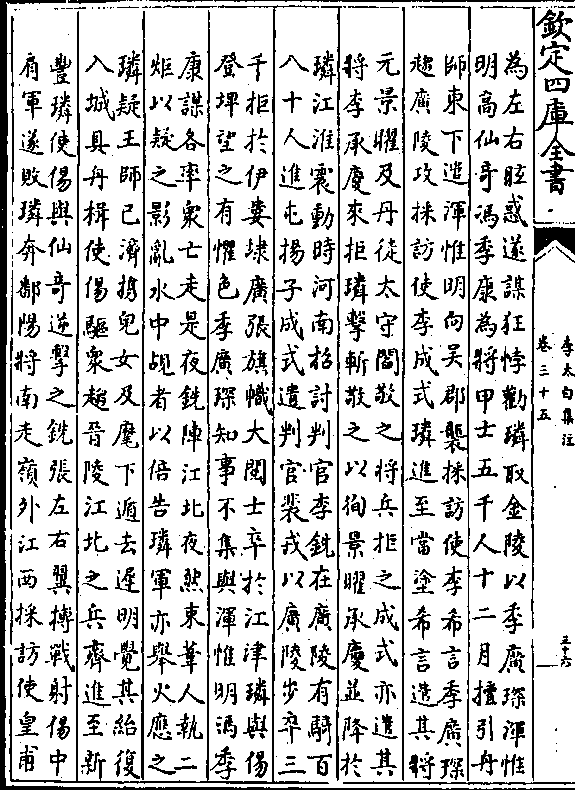 欽定四庫全書
李太白集注
卷三十五
三十六
為左右眩惑遂謀狂悖勸璘取金陵以季廣琛渾惟
明高仙奇馮季康為將甲士五千人十二月擅引舟
師東下遣渾惟明向吳郡襲採訪使李希言季廣琛
趨廣陵攻採訪使李成式璘進至當塗希言造其將
元景曜及丹徒太守閻敬之將兵拒之成式亦遣其
將李承慶來拒璘擊斬敬之以徇景曜承慶並降於
璘江淮震動時河南招討判官李銑在廣陵有騎百
八十人進屯揚子成式遣判官裴戎以廣陵步卒三
千拒於伊婁埭廣張旗幟大閱士卒於江津璘與偒
登埤望之有懼色季廣琛知事不集與渾惟明馮季
康謀各率衆亡走是夜銑陣江北夜然束葦人執二
炬以疑之影亂水中覘者以倍告璘軍亦舉火應之
璘疑王師已濟擕兒女及麾下遁去遲明覺其紿復
入城具舟楫使偒驅衆趨晉陵江北之兵齊進至新
豐璘使偒與仙奇逆擊之銑張左右翼搏戰射偒中
肩軍遂敗璘奔鄱陽將南走嶺外江西採訪使皇甫